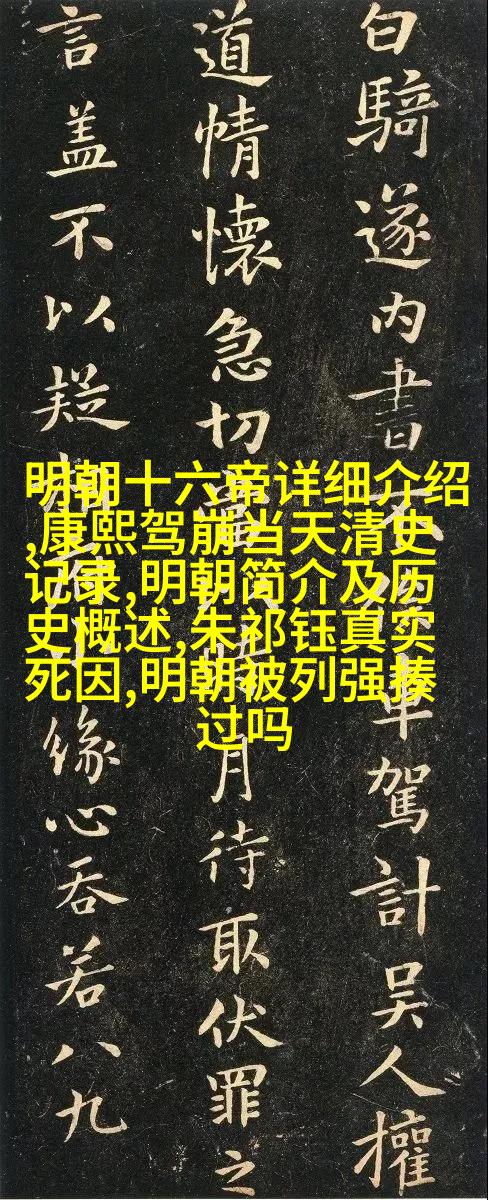 白騎遂内書不車駕計吴人權
道情懷急切月待取伏罪之
言盖不以疑緣心吞若八九
明朝十六帝详细介绍
,康熙驾崩当天清史
记录,明朝简介及历
史概述,朱祁钰真实
死因,明朝被列强揍
过吗